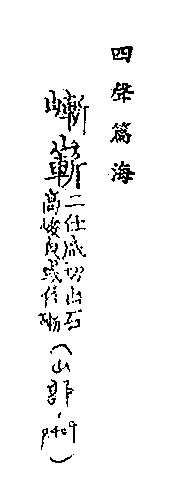 四聲篇海
嶃嶄二仕咸切山石
高峻皃或作磛
(山部, p409)